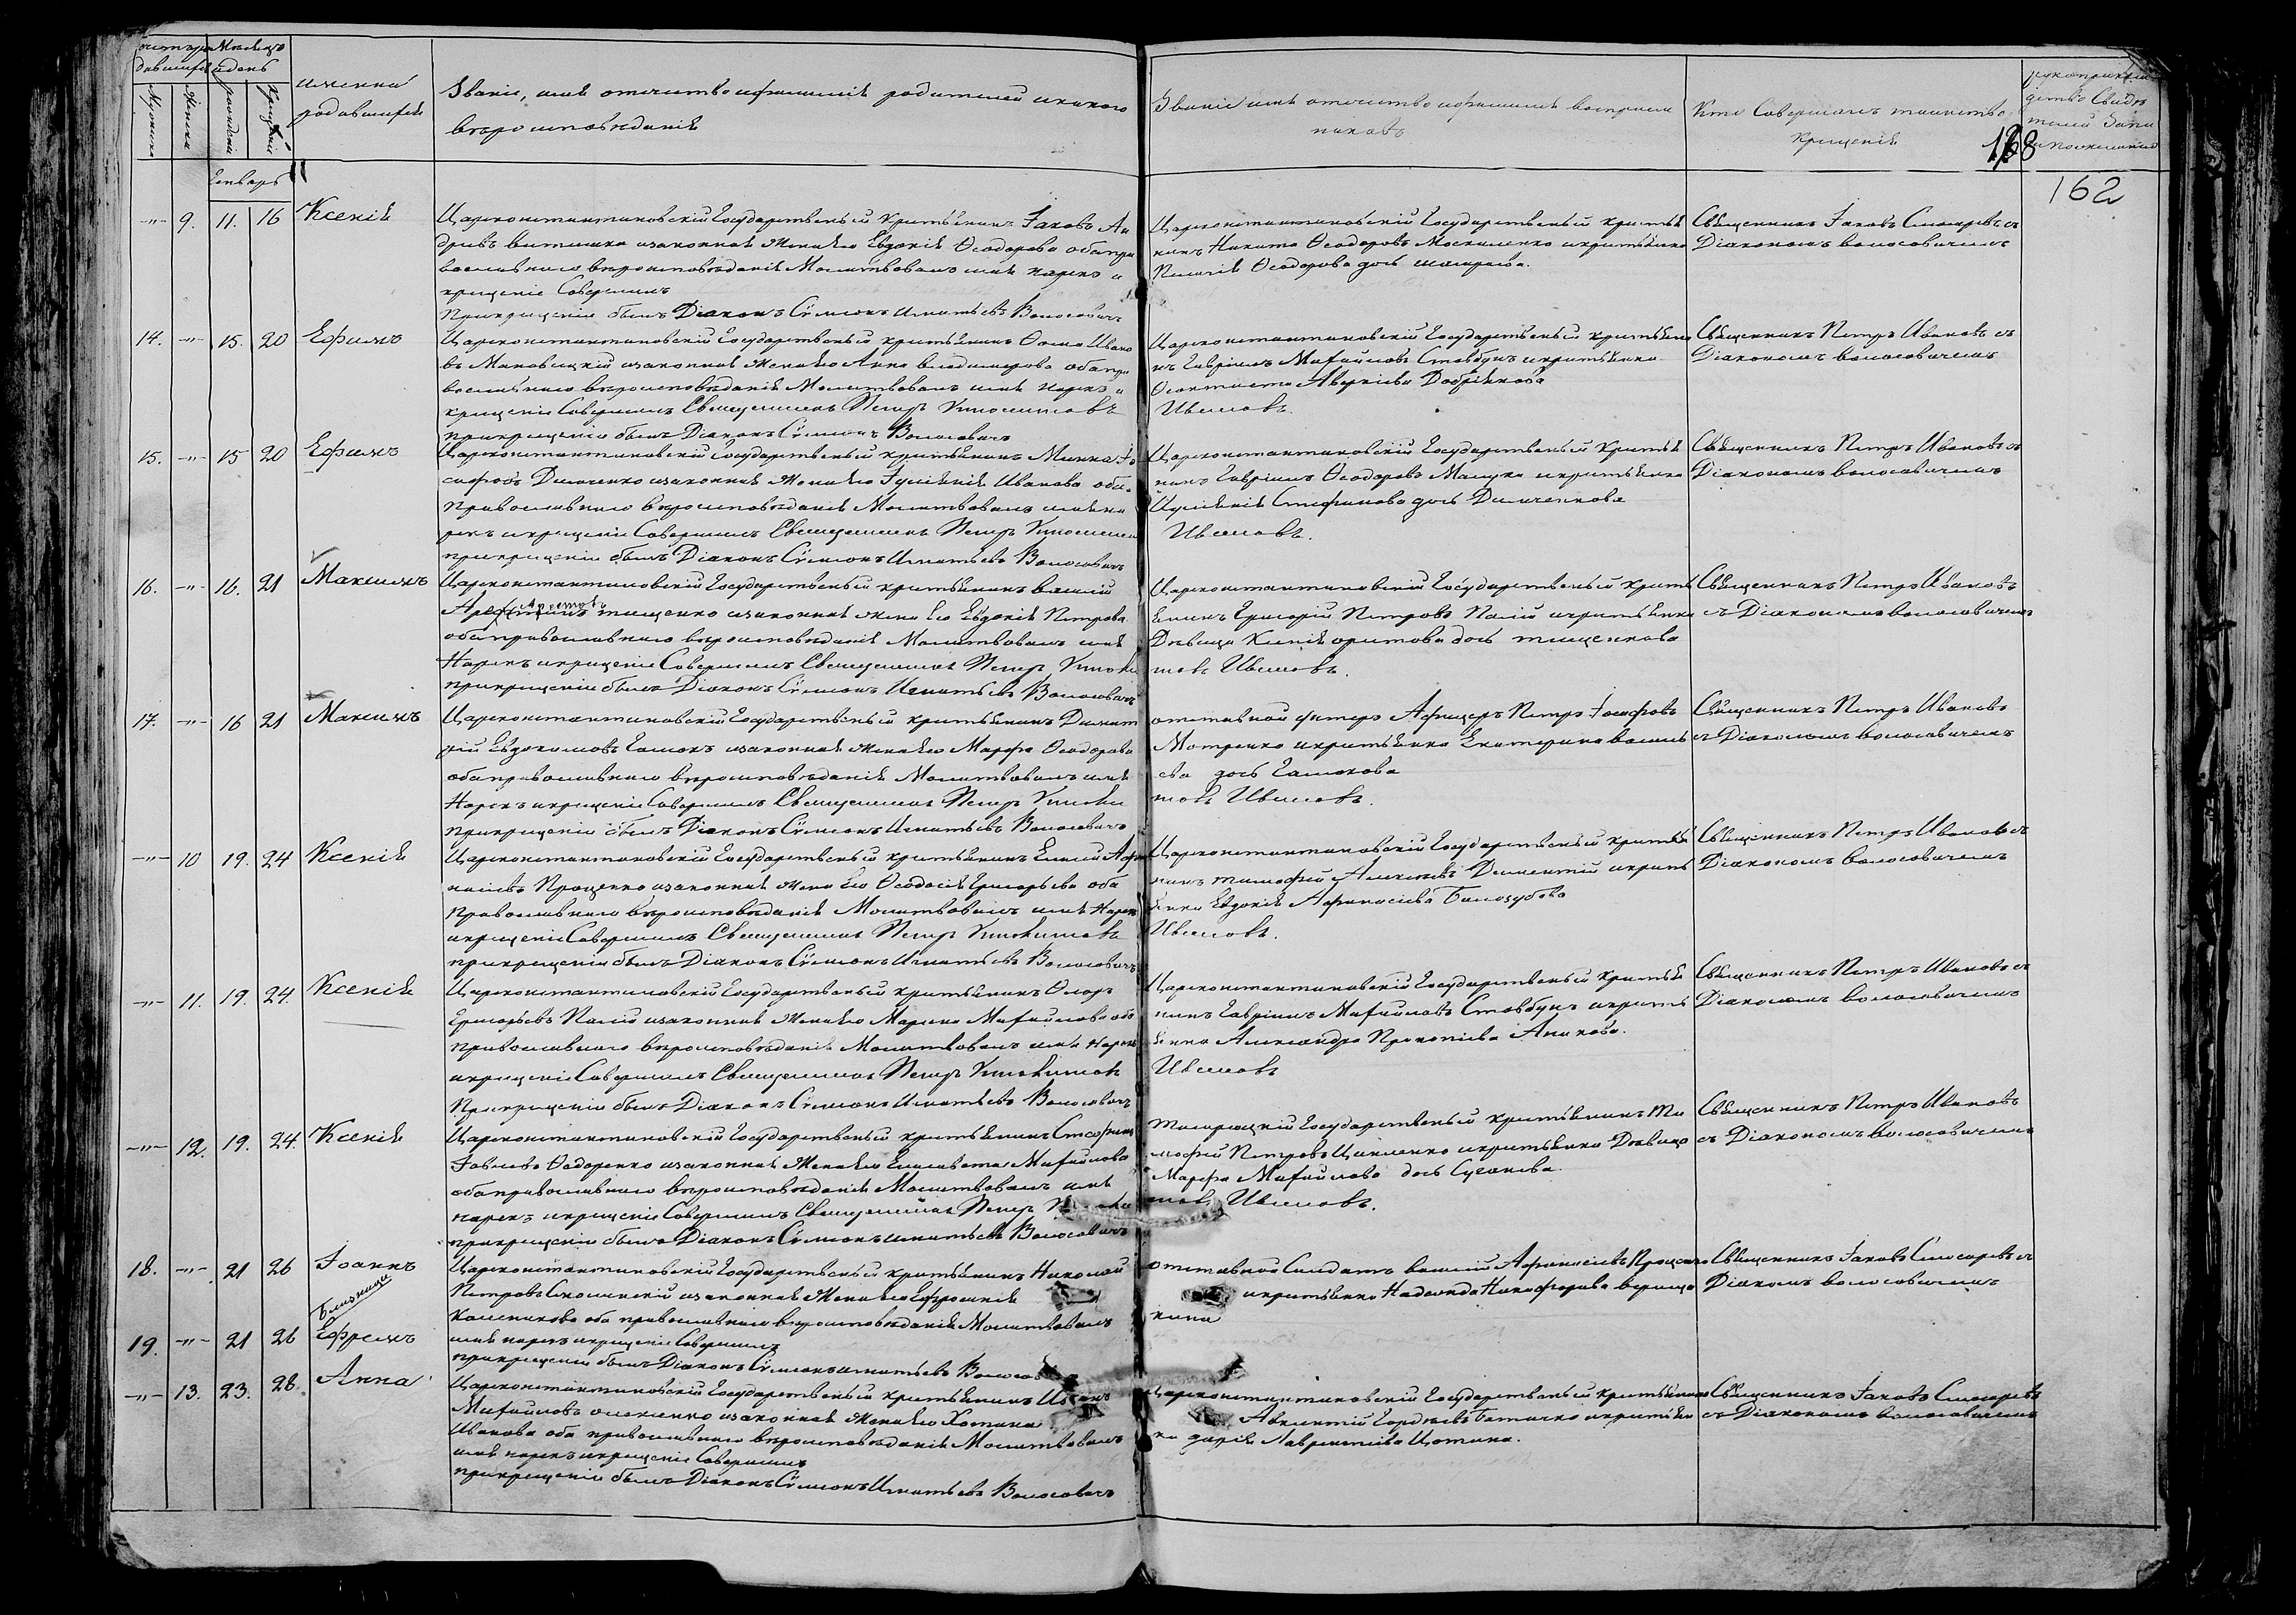 Мѣсяцъ
и день
Мужеска
Женска
рожденія
Крещенія
имена
родившихся
Званіе, имя отечество и фамилія родителей и какого
вѣроисповѣданія
Званіе имя отечество и фамилія воспріем
никовъ
Кто Совершалъ таинство
Крещенія
168
162
Генварь
-"- 9. 11. 16 Ксенія
Цареконстантиновскій Государственый Крестьянинъ Іаковъ Ан
и законная жена его Евдокія Ѳеодорова оба пра
вославнаго вѣроисповѣданія Молитвовалъ имя нарекъ и
крещеніе Совершилъ
При крещеніи былъ Діаконъ Сѵмеонъ Игнатьевъ Волосовичъ
Цареконстантиновскій Государственый крестья
нинъ Никита Ѳеодоровъ Москаленко и крестьянка
Пелагія Ѳеодорова дочь
Священникъ Іаковъ Слюсаревъ съ
Діакономъ волосовичемъ
14. -"- 15. 20 Ефимъ
Цареконстантиновскій Государственый крестьянинъ Ѳома Ивано
въ Маковецкій и законная жена его Анна владимерова оба пра
вославнаго вѣроисповѣданія Молитвовалъ имя нарекъ и
крещеніе Совершилъ Священникъ Петръ
при крещеніи былъ Діаконъ Сѵмеонъ Волосовичъ
Цареконстантиновскій Государственый крестьяни
нъ Гавріилъ Михайловъ Стовбунъ и крестьянка
Ѳеоктиста Аверкіева
Ивановъ.
Священникъ Петръ Ивановъ съ
Діакономъ волосовичемъ
15. -"- 15 20 Ефимъ
Цареконстантиновскій Государственый крестьянинъ Минна Іо
сифовъ и законная жена его Іуліянія Иванова оба
Православнаго вѣроисповѣданія Молитвовалъ имя на
рекъ и крещеніе Совершилъ Священникъ Петръ
при крещеніи былъ Діаконъ Сѵмеонъ Игнатьевъ Волосовичъ
Цареконстантиновскій Государственый Крестья
нинъ Гавріилъ Ѳеодоровъ и крестьянка
Іуліянія Стефанова дочь
Ивановъ.
Священникъ Петръ Ивановъ съ
Діакономъ волосовичемъ
16. -"- 16. 21 Максимъ
Цареконстантиновскій Государственый крестьянинъ василій
тищенко и законная жена его Евдокія Петрова
оба православнаго вѣроисповѣданія Молитвовалъ имя
Нарекъ и крещеніе Совершилъ Священникъ Петръ
при крещеніи былъ Діаконъ Сѵмеонъ Игнатьевъ Волосовичъ
Цареконстантиновскій Государственый кресть
янинъ Григорій Петровъ Палій и крестьянка
Дѣвица дочь тищенкова
Ивановъ.
Священникъ Петръ Ивановъ
съ Діакономъ волосовичемъ
17. -"- 16 21 Максимъ
Цареконстантиновскій Государственый крестьянинъ Димит
рій Евдокимовъ и законная жена его Марфа Ѳеодорова
оба православнаго вѣроисповѣданія Молитвовалъ имя
Нарекъ и крещеніе Совершилъ Священникъ Петръ
при крещеніи былъ Діаконъ Сѵмеонъ Игнатьевъ Волосовичъ
отставной Афицеръ Петръ Іосифовъ
и крестьянка Екатерина василь
ева дочь
Ивановъ.
Священникъ Петръ Ивановъ
съ Діакономъ волосовичемъ
-"- 10 19. 24 Ксенія
Цареконстантиновскій Государственый крестьянинъ Афа
насіевъ Проценко и законная жена его Ѳеодосія Григорьева оба
Православнаго вѣроисповѣданія Молитвовалъ имя Нарекъ
и крещеніе Совершилъ Священникъ Петръ
при крещеніи былъ Діаконъ Сѵмеонъ Игнатьевъ Волосовичъ
Цареконстантиновскій Государственый крестья
нинъ тимофей Алексѣевъ и кресть
янка Евдокія Афанасіева Белозубова
Ивановъ.
Священникъ Петръ Ивановъ съ
Діакономъ волосовичемъ
-"- 11. 19. 24. Ксенія
Цареконстантиновскій Государственый крестьянинъ
Григорьевъ Палій и законная жена его Марина Михайлова оба
православнаго вѣроисповѣданія Молитвовалъ имя Нарекъ
и крещеніе Совершилъ Священникъ Петръ
При крещеніи былъ Діаконъ Сѵмеонъ Игнатьевъ Волосовичъ
Цареконстантиновскій Государственый Крестья
нинъ Гавріилъ Михайловъ Стовбунъ и кресть
янка Александра Прокопіева
Ивановъ
Священникъ Петръ Ивановъ съ
Діакономъ волосовичемъ
-"- 12. 19. 24. Ксенія
Цареконстантиновскій Государственый крестьянинъ Стефанъ
Ѳедоренко и законная жена его Елисавета Михайлова
оба православнаго вѣроисповѣданія Молитвовалъ имя
нарекъ и крещеніе Совершилъ Священникъ Петръ
при крещеніи былъ Діаконъ Сѵмеонъ Игнатьевъ Волосовичъ
Государственый крестьянинъ Ти
мофей Петровъ и крестьянка Дѣвица
Марфа Михайлова дочь
Ивановъ.
Священникъ Петръ Ивановъ
съ Діакономъ волосовичемъ
18. -"- 21 26 Іоаннъ
Близнецы
19. -"- 21 26 Ефремъ
Цареконстантиновскій Государственый крестьянинъ Николай
Петровъ и законная жена его Ефросинія
оба православнаго вѣроисповѣданія Молитвовалъ
имя нарекъ и крещеніе Совершилъ
при крещеніи былъ Діаконъ Сѵмеонъ Игнатьевъ
отставной Солдатъ василій Афанасіевъ Проценко
и крестьянка Надежда Никифорова
Священникъ Іаковъ Слюсаревъ съ
Діакономъ волосовичемъ
-"- 13. 23. 28. Анна
Цареконстантиновскій Государственый крестьянинъ
Михайловъ и законная жена его
Иванова оба православнаго вѣроисповѣданія Молитвовалъ
имя нарекъ и крещеніе Совершилъ
при крещеніи былъ Діаконъ Сѵмеонъ Игнатьевъ Волосовичъ
Цареконстантиновскій Государственый крестьянинъ
Авксентій Гордѣевъ и крестьян
ка дарія Лаврентіева
Священникъ Іаковъ Слюсаревъ
съ Діакономъ волосовичемъ